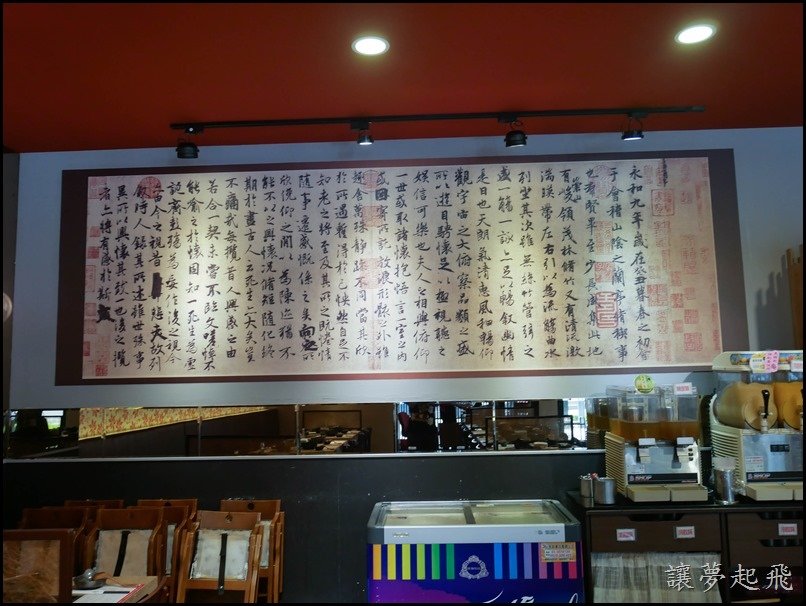 永和九年歲在癸丑暮春之初會
于會稽山陰之蘭亭脩稧事
也羣賢畢至少長咸集此地
有崇山峻領茂林脩竹又有清流激
湍暎帶左右引以為流觴曲水
列坐其次雖無絲竹管弦之
盛一觴一詠亦足以暢敘幽情
是日也天朗氣清惠風和暢仰
觀宇宙之大俯察品類之盛
所以遊目騁懷足以極視聽之
娛信可樂也夫人之相與俯仰
一世或取諸懷抱悟言一室之內
或因寄所託放浪形骸之外雖
趣舍萬殊靜躁不同當其欣
於所遇暫得於己快然自足不
知老之將至及其所之既惓情
隨事遷感慨係之矣向之所
欣俛仰之閒以為陳迹猶不
能不以之興懷況脩短隨化終
期於盡古人云死生亦大矣豈
不痛哉每攬昔人興感之由
若合一契未嘗不臨文嗟悼不
能喻之於懷固知一死生為虛
誕齊彭殤為妄作後之視今
亦由今之視昔悲夫故列
敘時人錄其所述雖世殊事
異所以興懷其致一也後之攬
者亦將有感於斯文
讓夢起飛